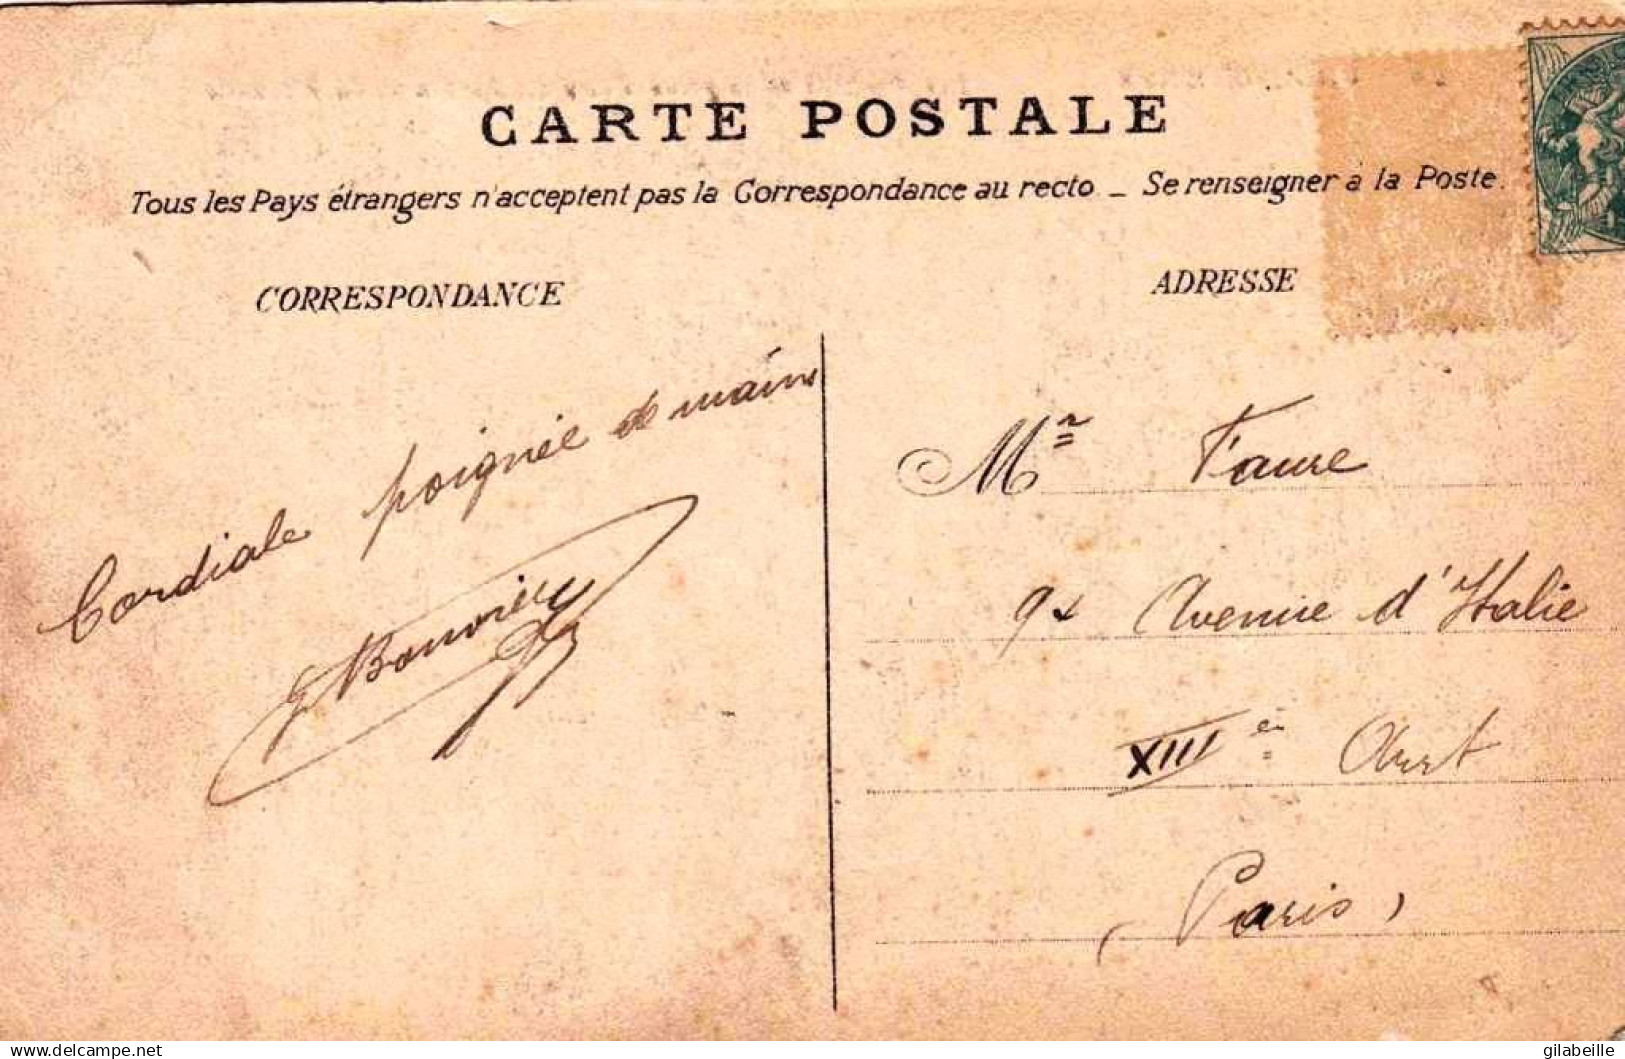 CARTE POSTALE
Tous les Pays étrangers n'acceptent pas la Correspondance au recto _ Se renseigner à la Poste.
CORRESPONDANCE
ADRESSE
Cordiale poignée de mains
Mr Faure
Avenue d'Italie
XIII è
Paris
delcampe.net
gilabeille